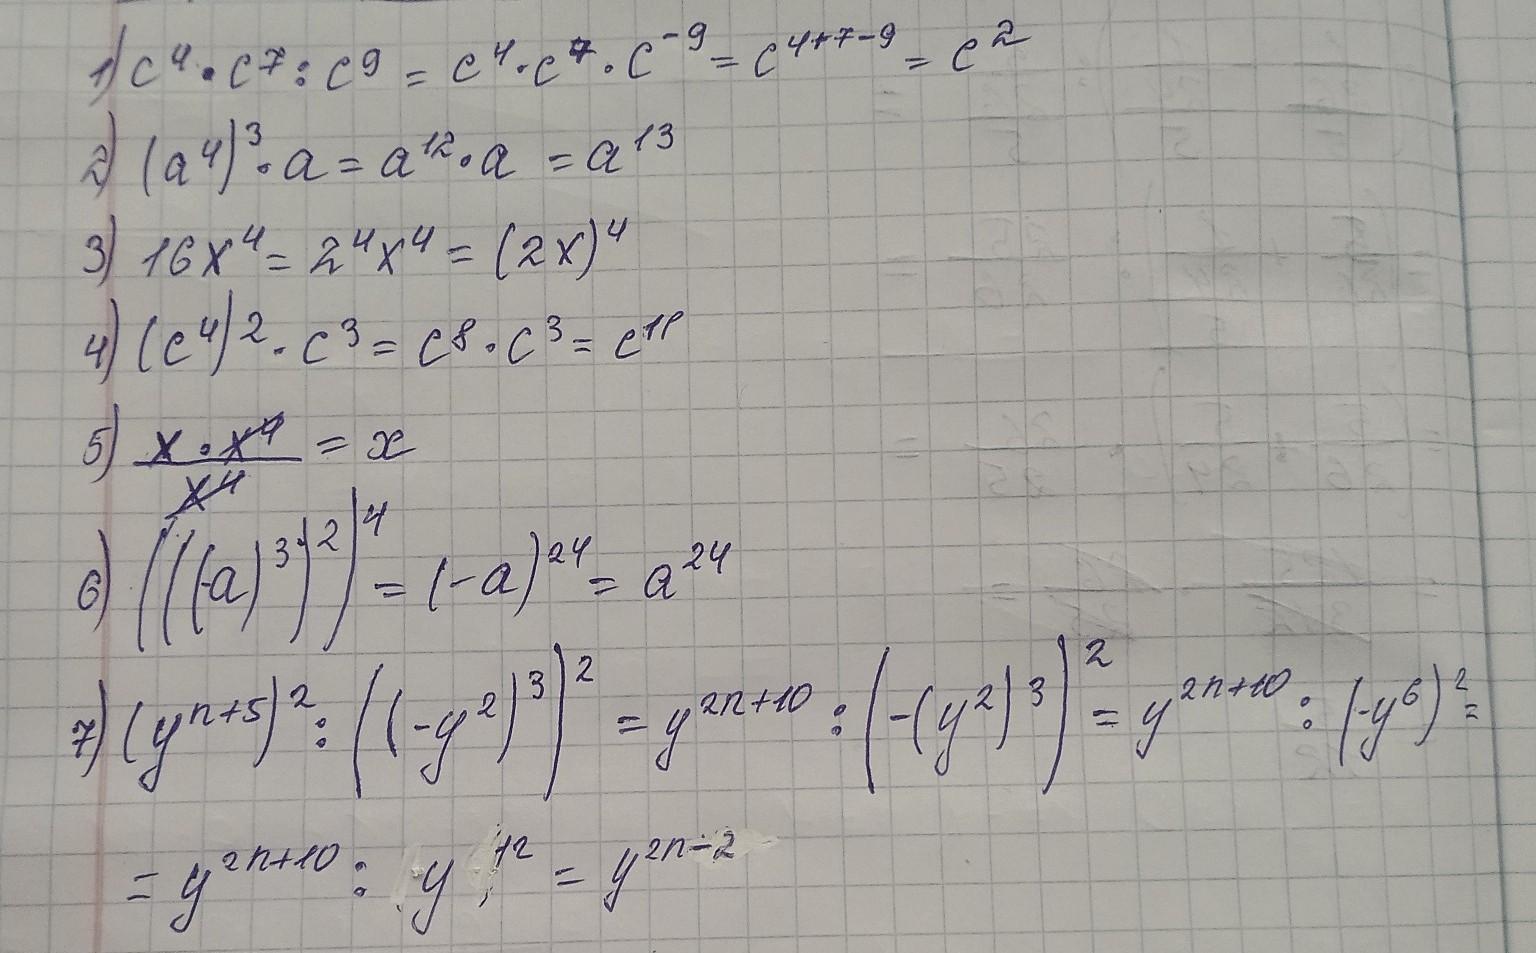 1) c⁴ · c⁷ : c⁹ = c⁴ · c⁷ · c⁻⁹ = c⁴⁺⁷⁻⁹ = c²
2) (a⁴)³ · a = a¹² · a = a¹³
3) 16x⁴ = 2⁴x⁴ = (2x)⁴
4) (c⁴)² · c³ = c⁸ · c³ = c¹¹
5) x · x⁴ / x⁴ = x
6) (((-a)³)²)⁴ = (-a)²⁴ = a²⁴
7) (yⁿ⁺⁵)² : ((-y²)³)² = y²ⁿ⁺¹⁰ : (-(y²)³)² = y²ⁿ⁺¹⁰ : (-y⁶)² =
= y²ⁿ⁺¹⁰ : y¹² = y²ⁿ⁻²